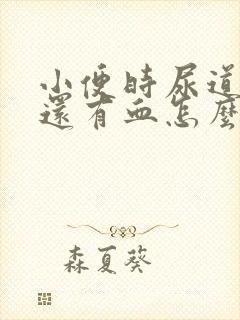 小便時尿道
還有血怎麼
森夏葵